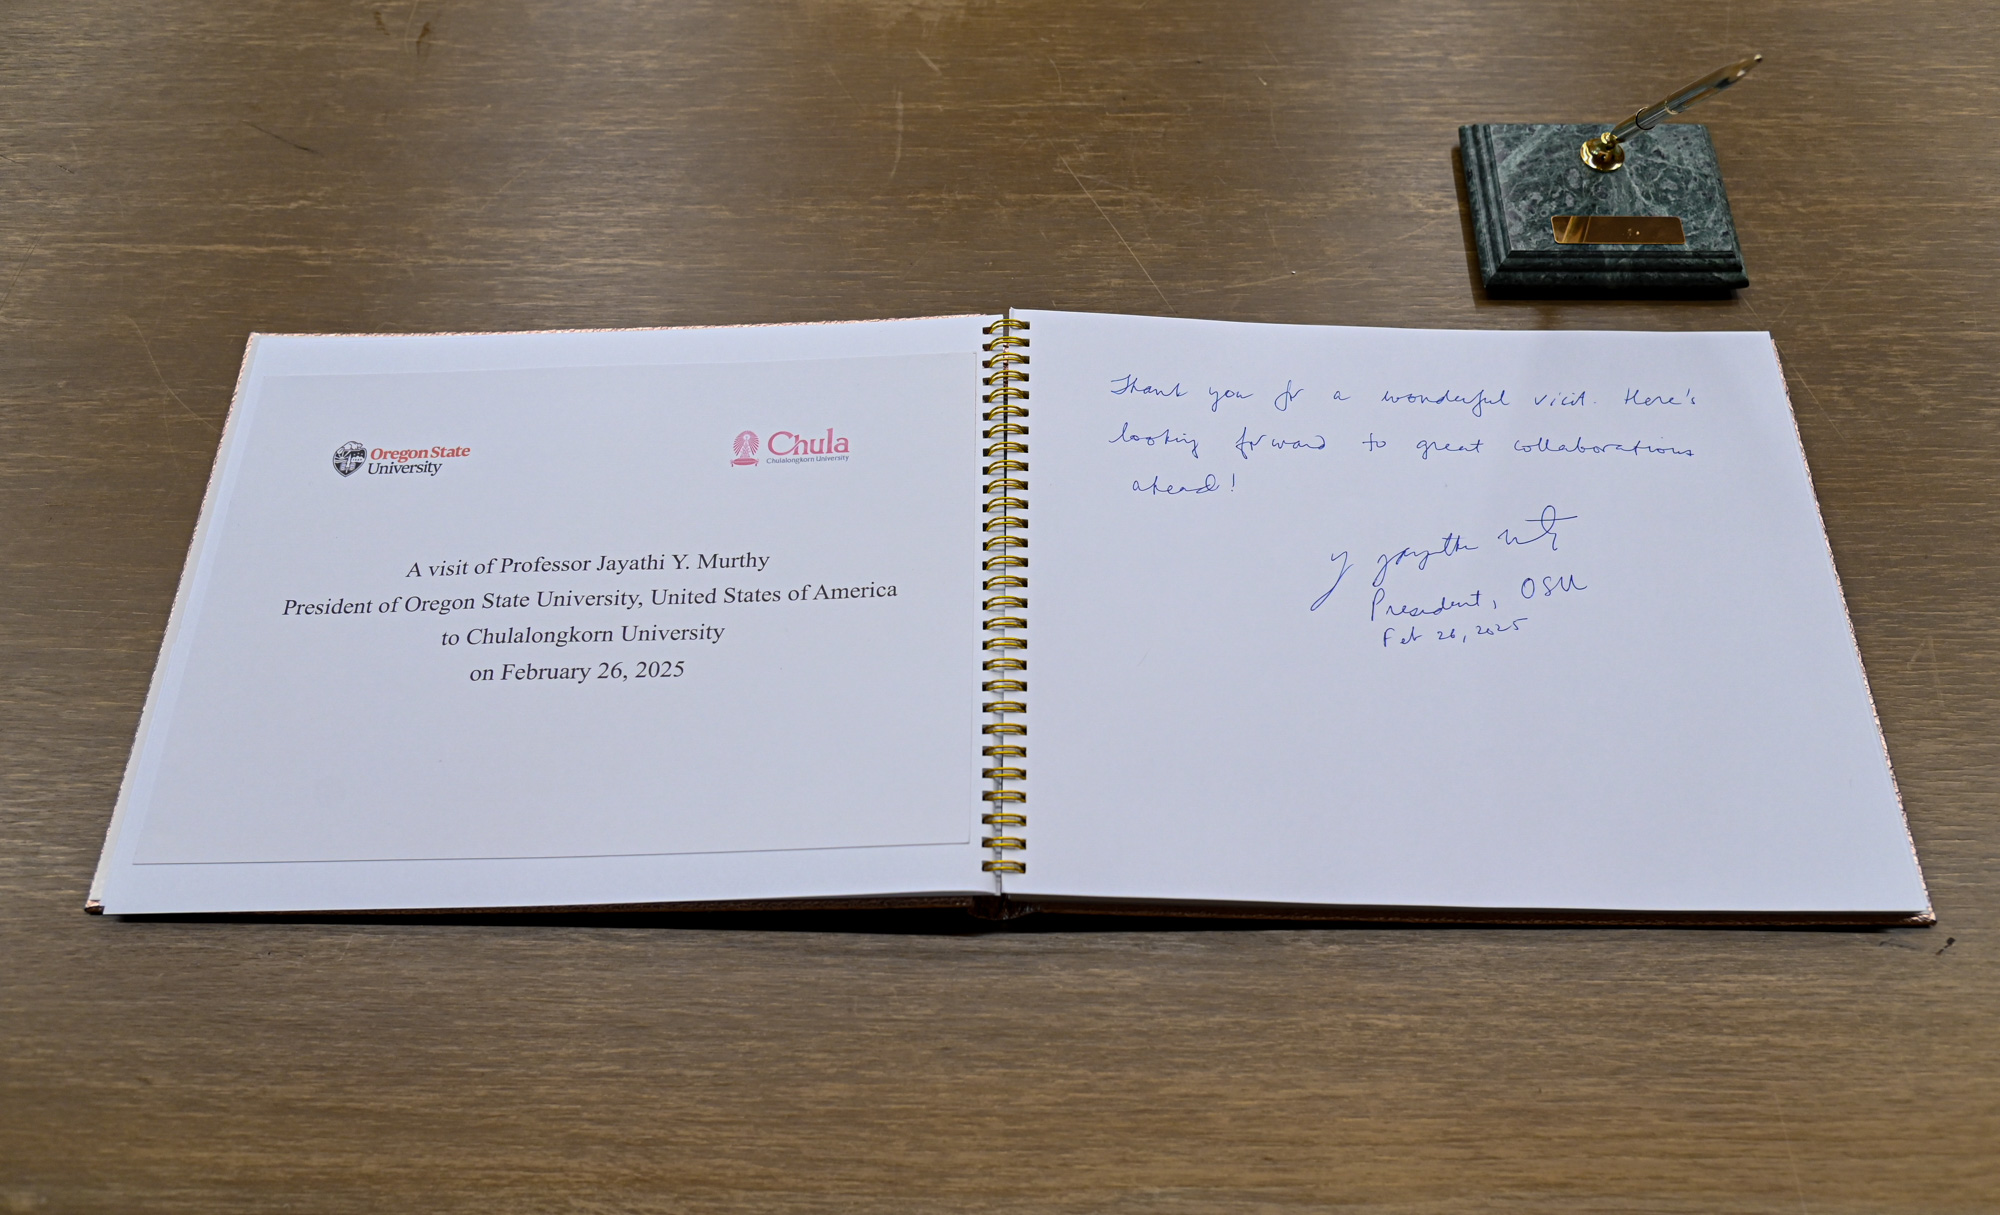 Oregon State
University
Chula
Chulalongkorn University
A visit of Professor Jayathi Y. Murthy
President of Oregon State University, United States of America
to Chulalongkorn University
on February 26, 2025
Thank you for a wonderful visit. Here's
looking forward to great collaborations
ahead!
Y Jayathi Murthy
President, OSU
Feb 26, 2025